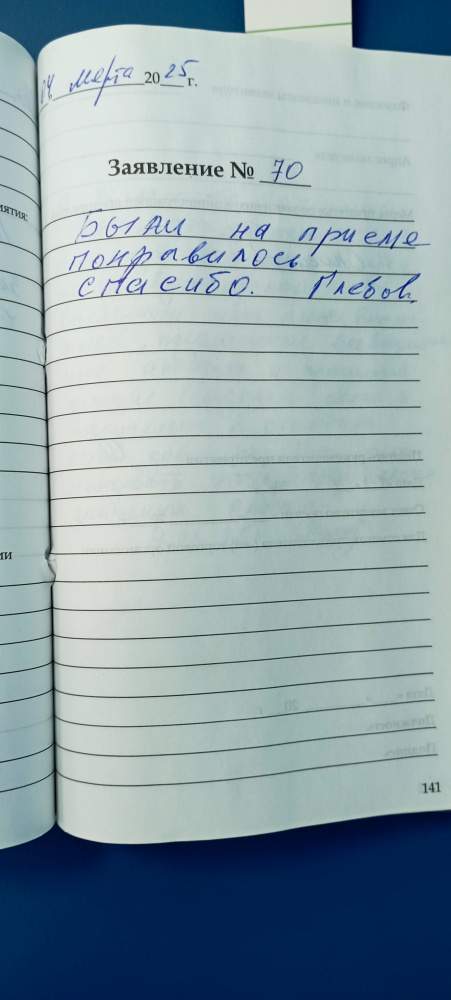 24 марта 2025 г.
Заявление № 70
ятия:
Были на приеме
понравилось
спасибо. Глебов.
ми
141